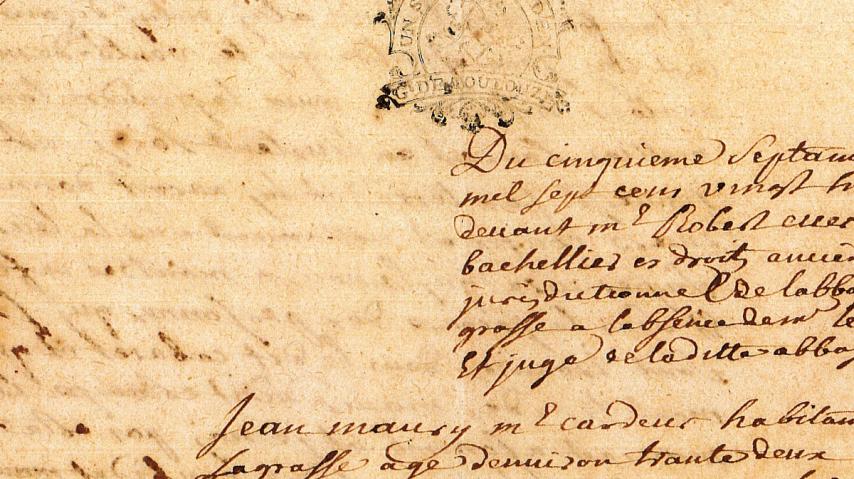 UN S DEN
G DE TOULOUZE
Du cinquieme Septam
mel sept cens vingt h
deuant mr Robert
bachellier es droitz ancie
jurisdictionnel de labba
grasse a labsence de mr le
Et juge de laditte abba
Jean maury mr cardeur habitan
Lagrasse age denuiron trante deux